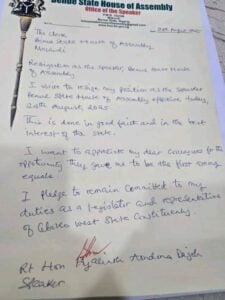 Benue State House of Assembly
Office of the Speaker
24th August 2025
The Clerk
Benue State House of Assembly
Makurdi
Resignation as the Speaker, Benue State House
of Assembly
I write to resign my position as the Speaker
Benue State House of Assembly effective today,
24th August, 2025.
This is done in good faith and in the best
interest of the state.
I want to appreciate my dear Colleagues for the
opportunity they gave me to be the first among
equals.
I pledge to remain Committed to my
duties as a Legislator and representative
of Gboko West State Constituency.
Rt Hon Aondona Dajoh
Speaker